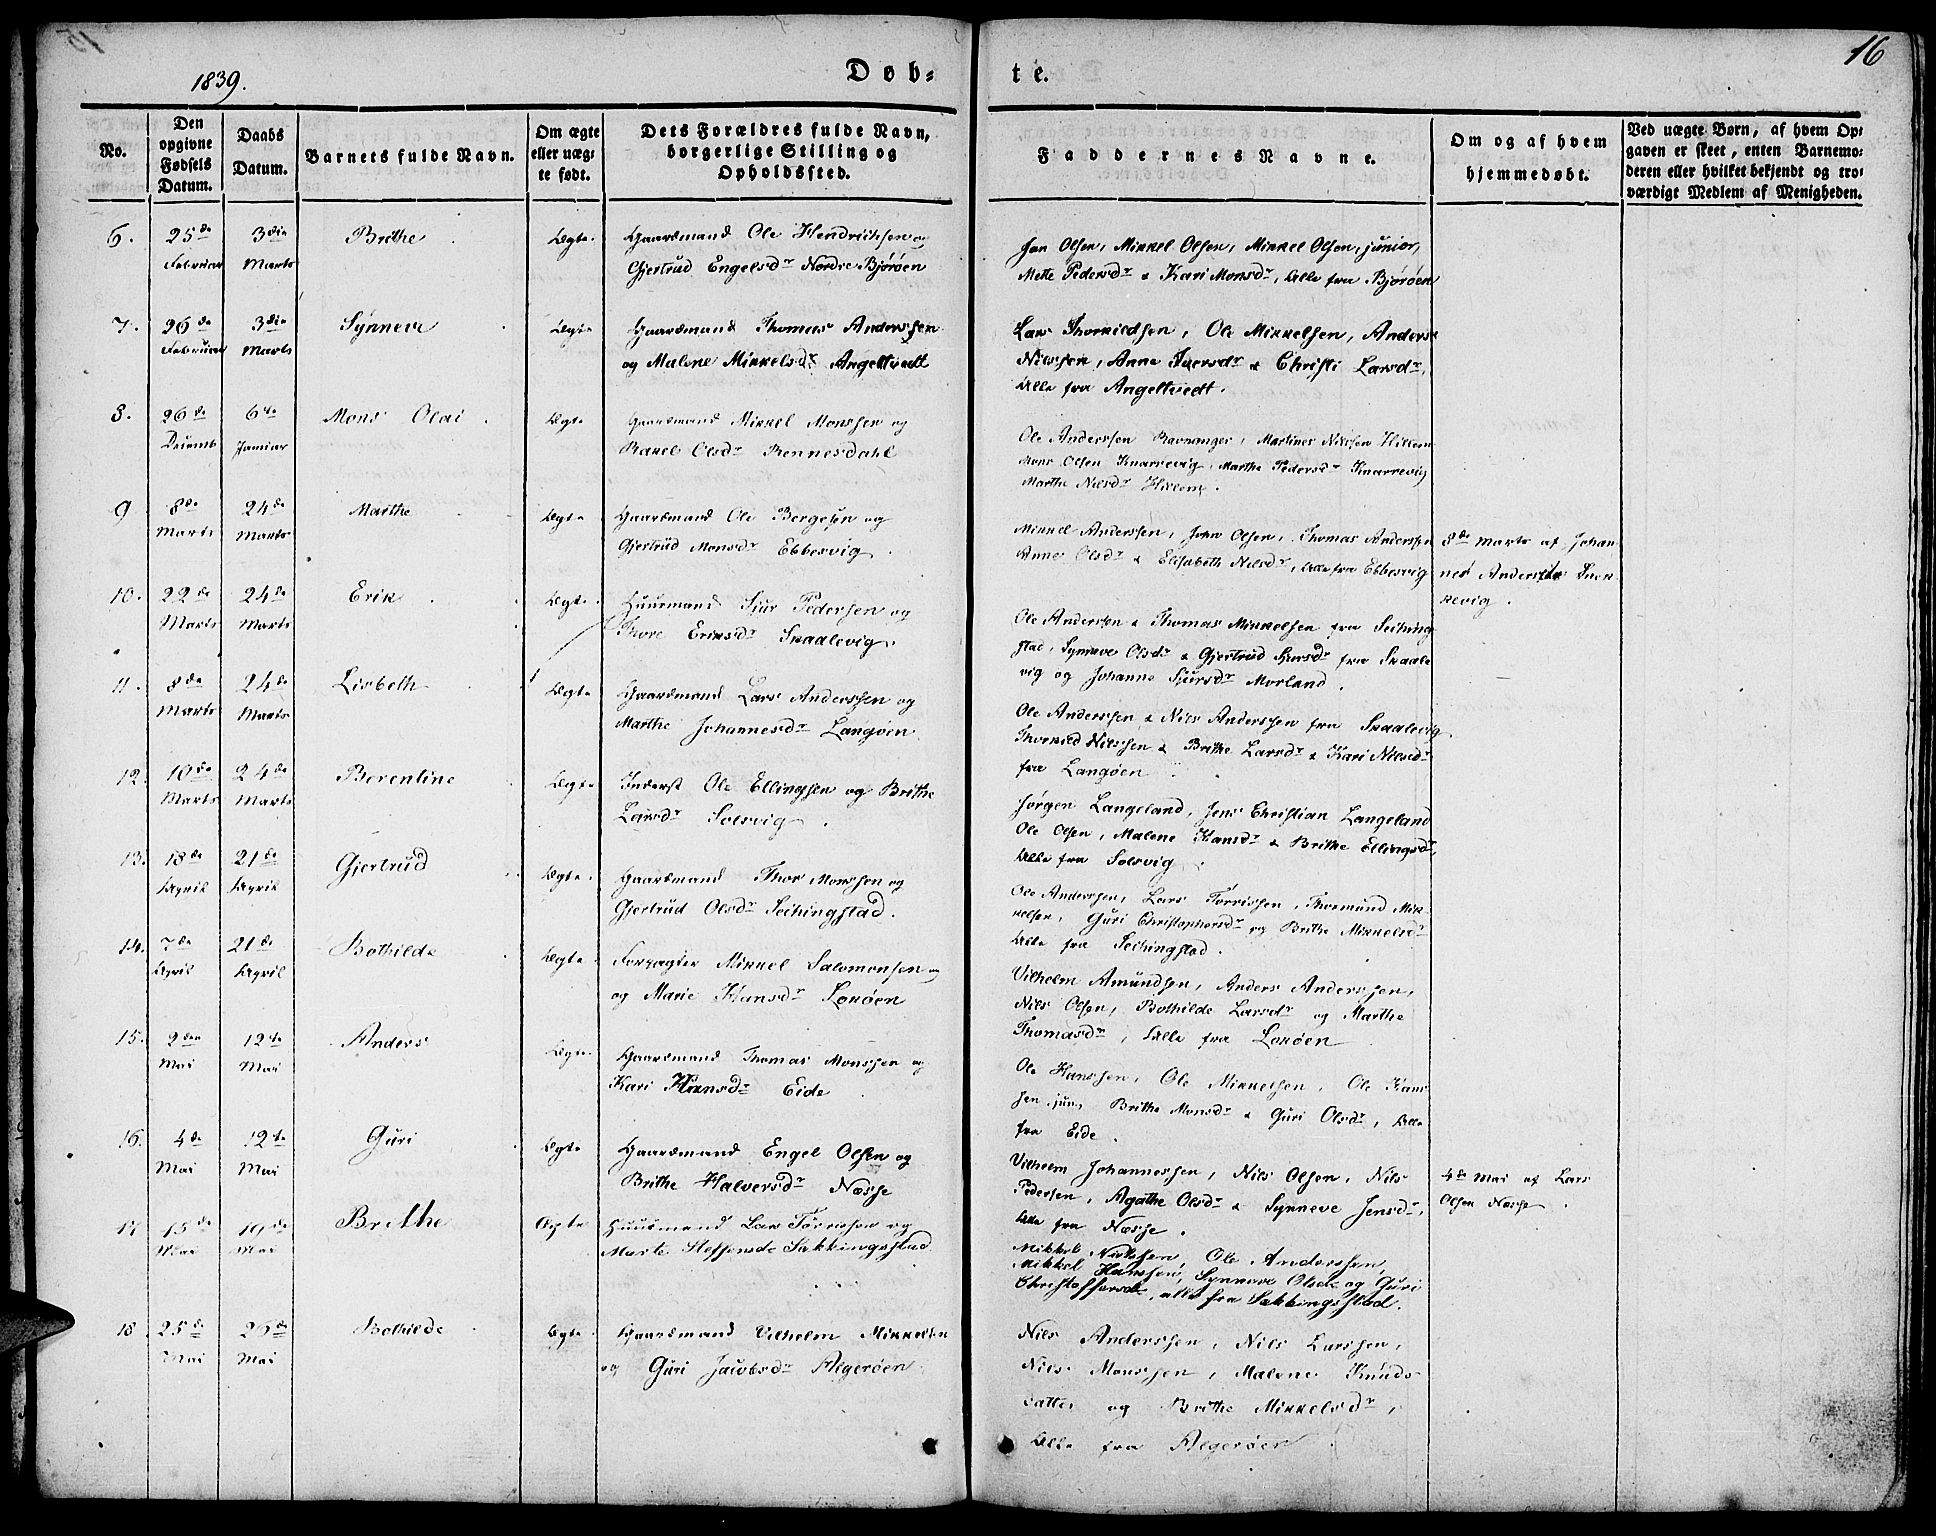 1839.
Døb-
te.
16
No.
Den opgivne Fødsels Datum.
Daabs Datum.
Barnets fulde Navn.
Om ægte eller uæg- te født.
Dets Forældres fulde Navn, borgerlige Stilling og Opholdsfted.
Faddernes Navne.
Om og af hvem hjemmedøbt.
Ved uægte Børn, af hvem Op- gaven er skeet, enten Barnemo- deren eller hvilket bekjendt og tro- værdigt Medlem af Menigheden.
6. 25de Februar 3die Marts Brithe Ægte.
Gaardmand Ole Hendrichsen og
Gjertrud Engelsdr Nordre Bjørøen
Jon Olsen, Mikkel Olsen, Mikkel Olsen, junior,
Mette Pedersdr & Kari Monsdr, Alle fra Bjørøen
7. 26de Februar 3die Marts Synneve Ægte
Gaardmand Thomas Anderssen
og Malene Mikkelsdr Angeltvedt
Lars Thorkildsen, Ole Mikkelsen, Anders
Nilssen, Anne Iversdr & Christi Larsdr,
Alle fra Angeltvedt.
8. 26de Decemb 6te Januar Mons Olai Ægte
Gaardmand Mikkel Monssen og
Rakel Olsdr Rennesdahl
Ole Anderssen Ravnanger, Martines Nilssen Hillem
Mons Olsen Knarrevig, Marthe Pedersdr Knarrevig
Marthe Nilsdr Hillem.
9 8de Marts 24de Marts Marthe Ægte
Gaardmand Ole Bergesen og
Gjertrud Monsdr Ebbesvig.
Mikkel Anderssen, John Olsen, Thomas Anderssen
Anne Olsdr & Elisabeth Nilsdr, Alle fra Ebbesvig
8de Marts af Johan-
nes Anderssen
kevig.
10. 22de Marts 24de Marts Erik Ægte.
Huusmand Sjur Pedersen og
Thore Eriksdr Skaalevig.
Ole Anderssen & Thomas Mikkelsen fra Seching
stad, Synneve Olsdr & Gjertrud Sjursdr fra Skaale
vig og Johanne Sjursdr Morland.
11. 8de Marts 24de Marts Lisbeth Ægte
Gaardmand Lars Anderssen og
Marthe Johannesdr Langøen
Ole Anderssen & Nils Anderssen fra Skaalevig
Thorkild Nilssen & Brithe Larsdr & Kari Nilsdr
fra Langøen
12. 10de Marts 24de Marts Berentine Ægte
Inderst Ole Ellingsen og Brithe
Larsdr Solsvig.
Jørgen Langeland, Jens Christian Langeland
Ole Olsen, Malene Hansdr & Brithe Ellingsdr,
Alle fra Solsvig.
13. 18de April 21de April Gjertrud Ægte.
Gaardmand Thor Monssen og
Gjertrud Olsdr Sechingstad.
Ole Anderssen, Lars Tørrissen, Thormund Mik-
kelsen, Guri Christophersdr og Brithe Mikkelsdr
Alle fra Sechingstad.
14. 7de April 21de April Bothilde Ægte.
Forpagter Mikkel Salomonsen og
og Marie Hansdr Lokøen
Vilhelm Amundsen, Anders Anderssen,
Nils Olsen, Bothilde Larsdr og Marthe
Thomasdr, Alle fra Lokøen
15. 2den Mai 12te Mai Anders Ægte.
Gaardmand Thomas Monssen og
Kari Hansdr Eide
Ole Hanssen, Ole Mikkelsen, Ole Hans
sen jun, Brithe Monsdr & Guri Olsdr, Alle
fra Eide.
16. 4de Mai 12te Mai Guri Ægte
Gaardmand Engel Olsen og
Brithe Halversdr Næsse
Vilhelm Johannessen, Nils Olsen, Nils
Pedersen, Agathe Olsdr & Synneve Jensdr,
Alle fra Næsse.
4de Mai af Lars
Olsen Næsse.
17 15de Mai 19de Mai Brithe Ægte
Huusmand Lars Tørrissen og
Marte Steffensdr Sækkingsstad
Mikkel Nielssen, Ole Anderssen,
Mikkel Hanssen, Synneve Olsdr og Guri
Christoffersdr, alle fra Sækkingsstad.
18 25de Mai 26de Mai Bothilde Ægte
Gaardmand Vilhelm Mikkelsen
og Guri Jacobsdr Algerøen.
Nils Anderssen, Nils Larssen,
Nils Monssen, Malene Knuds-
datter og Brithe Mikkelsdr,
Alle fra Algerøen.